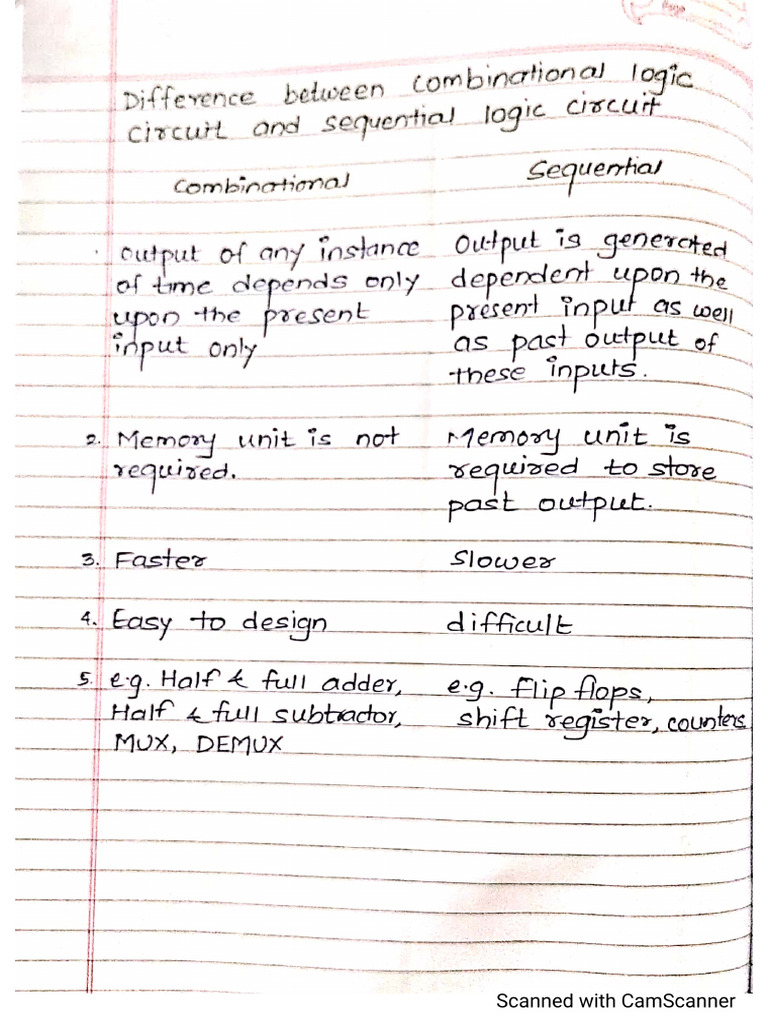 Page
Difference between combinational logic
circuit and sequential logic circuit
Combinational Sequential
. Output of any instance Output is generated
of time depends only dependent upon the
upon the present present input as well
input only as past output of
these inputs.
2. Memory unit is not Memory unit is
required. required to store
past output.
3. Faster Slower
4. Easy to design difficult
5. e.g. Half & full adder, e.g. flip flops,
Half & full subtractor, shift register, counters
MUX, DEMUX
Scanned with CamScanner